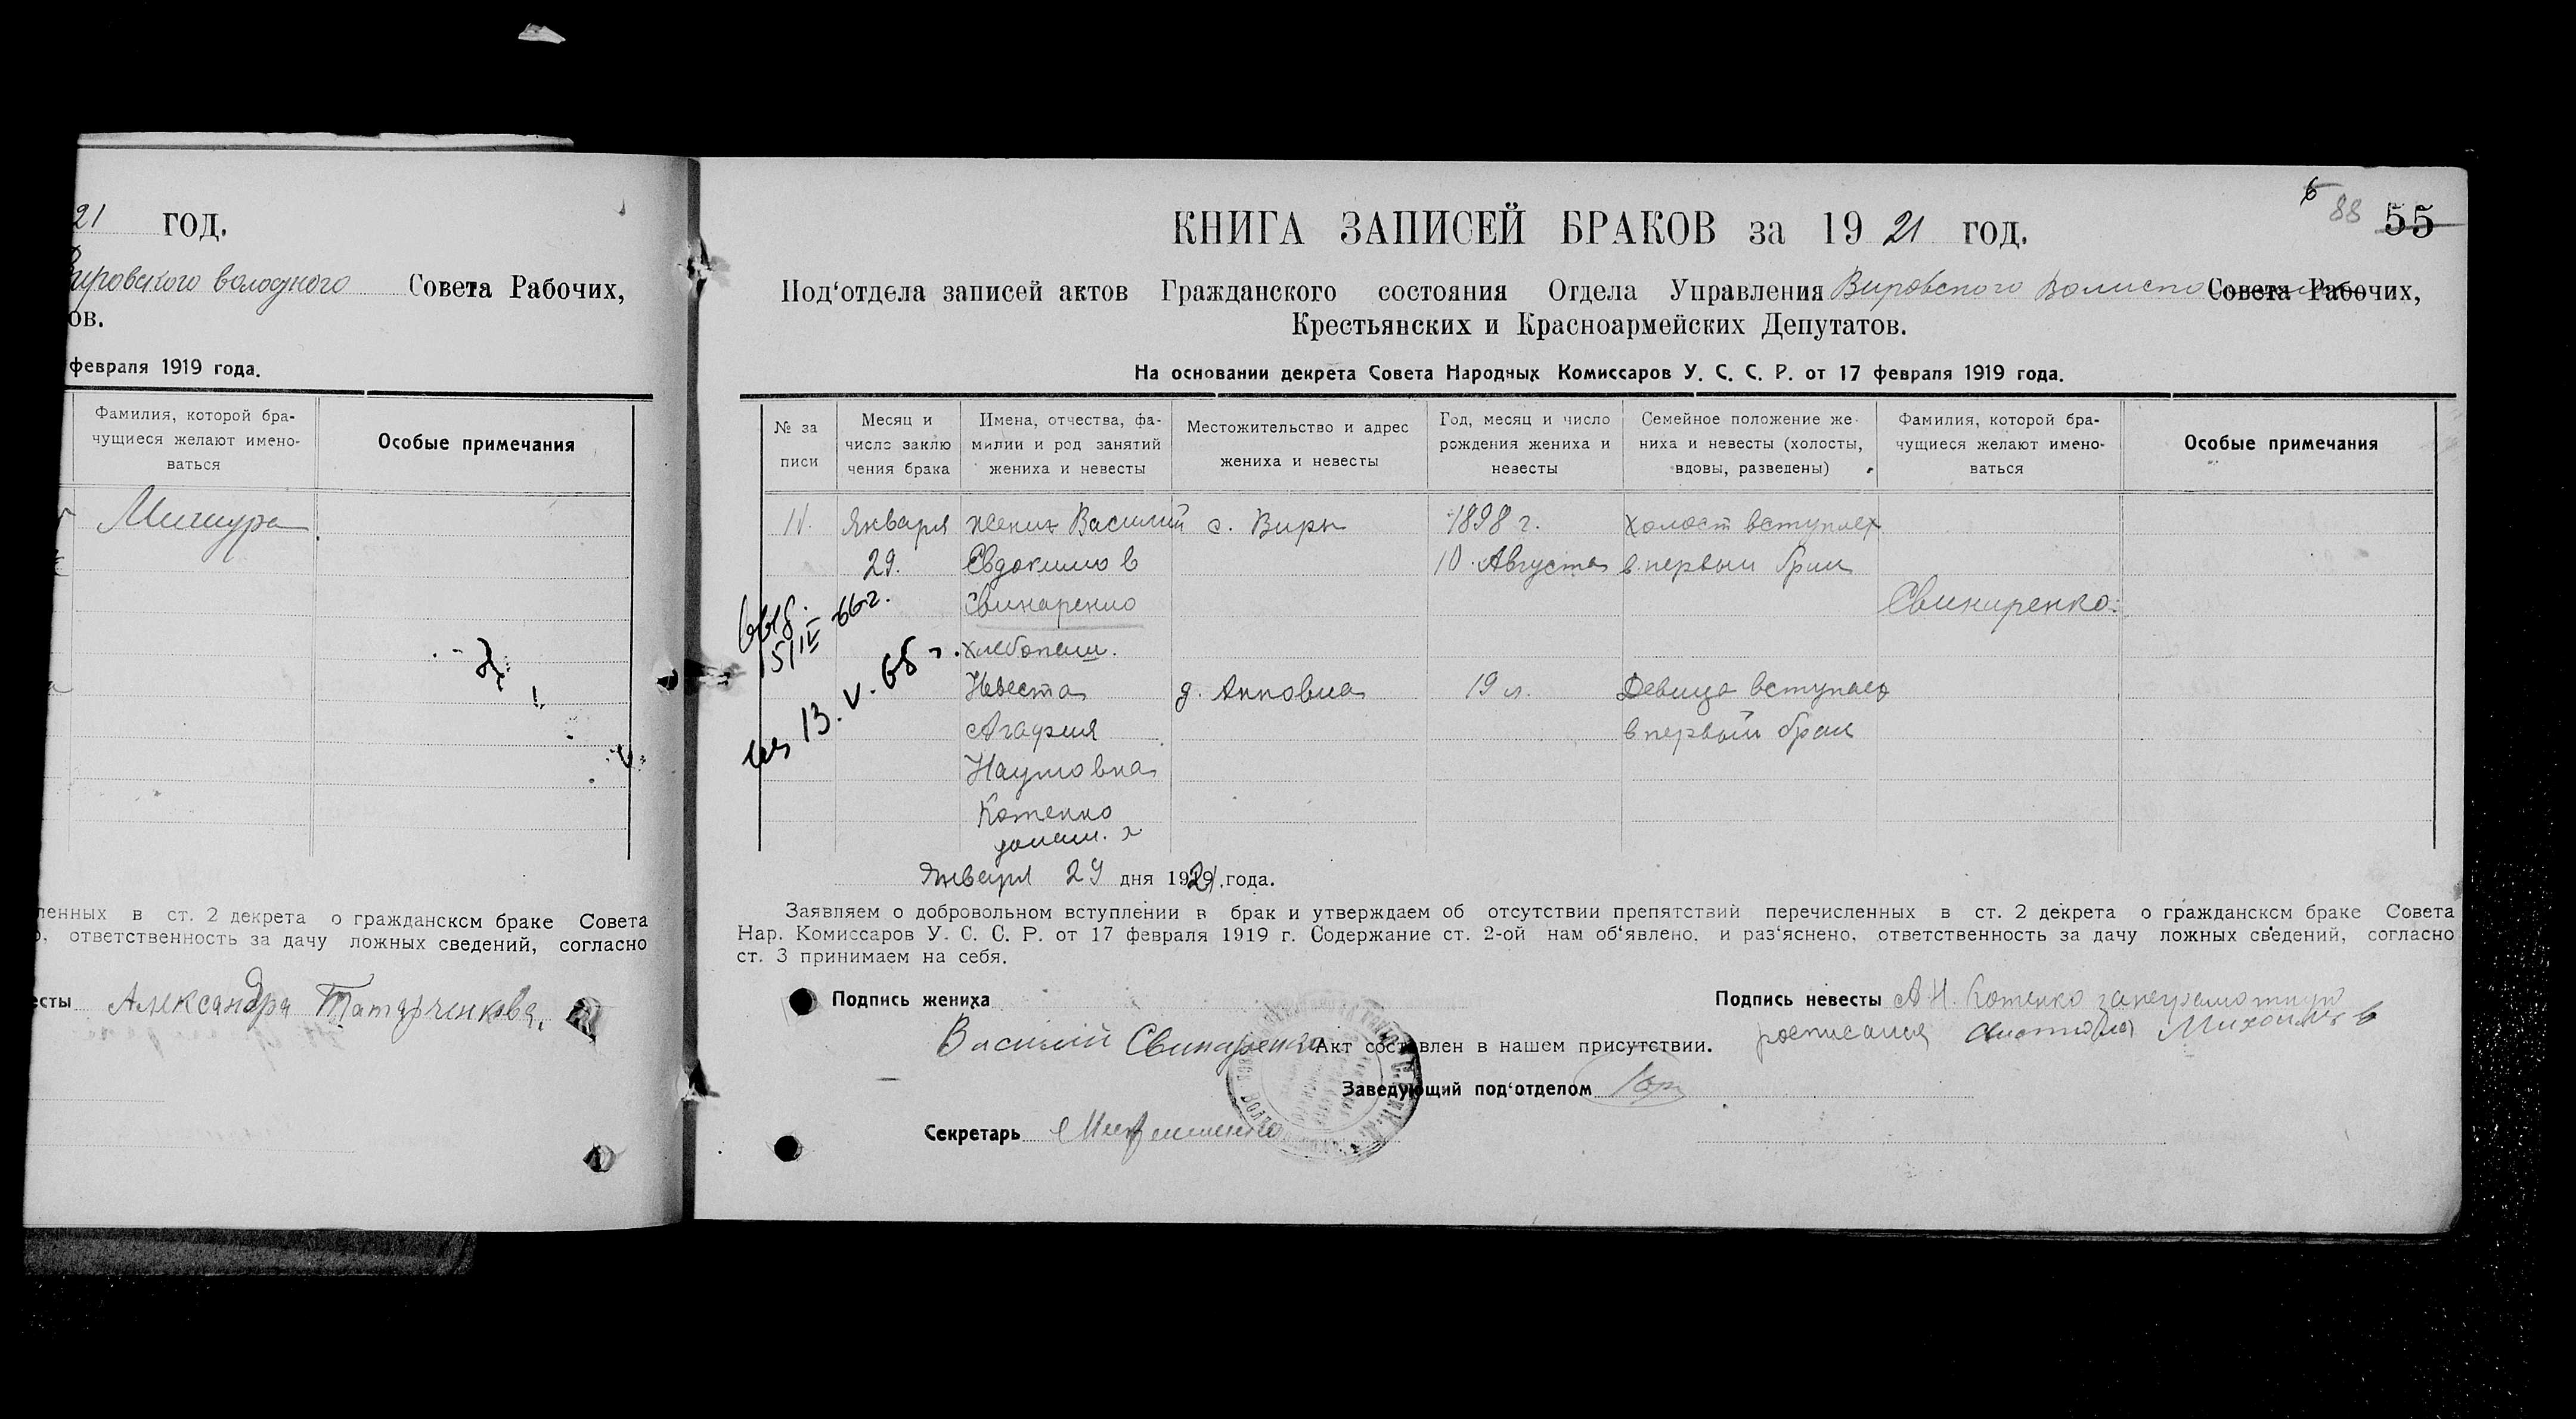 21 ГОД.
Вировского волостного Совета Рабочих,
ов.
февраля 1919 года.
Фамилия, которой бра-
чущиеся желают имено-
ваться
Особые примечания
Мишура
ленных в ст. 2 декрета о гражданском браке Совета
ответственность за дачу ложных сведений, согласно
есты Александра Татарченкова.
6 88 55
КНИГА ЗАПИСЕЙ БРАКОВ за 1921 год.
Под'отдела записей актов Гражданского состояния Отдела Управления Вировского Совета Рабочих,
Крестьянских и Красноармейских Депутатов.
На основании декрета Совета Народных Комиссаров У. С. С. Р. от 17 февраля 1919 года.
№ за
писи
Месяц и
число заклю
чения брака
Имена, отчества, фа-
милии и род занятий
жениха и невесты
Местожительство и адрес
жениха и невесты
Год, месяц и число
рождения жениха и
невесты
Семейное положение же-
ниха и невесты (холосты,
вдовы, разведены)
Фамилия, которой бра-
чущиеся желают имено-
ваться
Особые примечания
11. Января жених Василий с. Виры 1898 г. холост вступает
29. Евдокимов 10 Августа в первый брак
Свинаренко Свинаренко.
хлебопаш.
Невеста д. Анновка 19 л. Девица вступает
Агафия в первый брак
Наумовна
Котенко
домаш. х
выд.
15/IV 66 г.
13. V. 68 г.
Января 29 дня 1921 года.
Заявляем о добровольном вступлении в брак и утверждаем об отсутствии препятствий перечисленных в ст. 2 декрета о гражданском браке Совета
Нар. Комиссаров У. С. С. Р. от 17 февраля 1919 г. Содержание ст. 2-ой нам об'явлено, и раз'яснено, ответственность за дачу ложных сведений, согласно
ст. 3 принимаем на себя.
Подпись жениха
Подпись невесты А Н. Котенко занеграмотную
Василий Свинаренко
Акт составлен в нашем присутствии.
росписался
Заведующий под'отделом
Секретарь